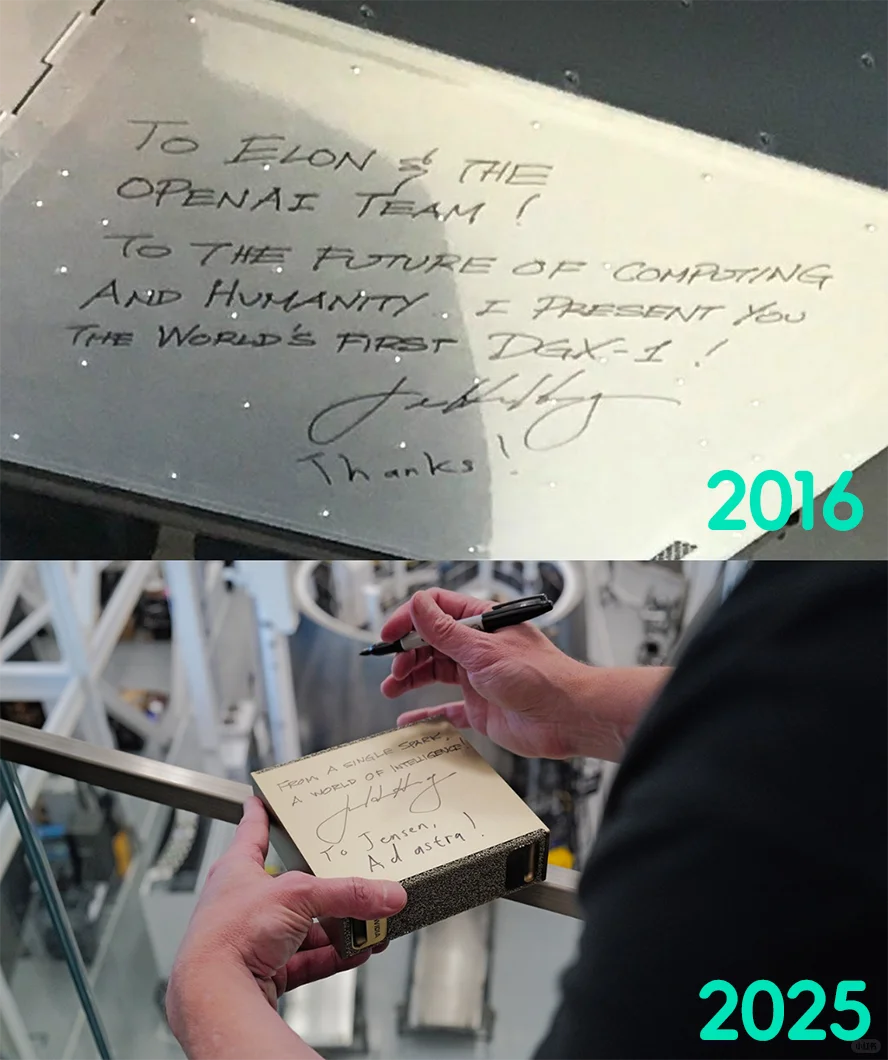 TO ELON & THE
OPENAI TEAM !
TO THE FUTURE OF COMPUTING
AND HUMANITY. I PRESENT YOU
THE WORLD'S FIRST DGX-1 !
Thanks!
2016
FROM A SINGLE SPARK,
A WORLD OF INTELLIGENCE!
To Jensen,
Ad astra!
NVIDIA
2025
小红书